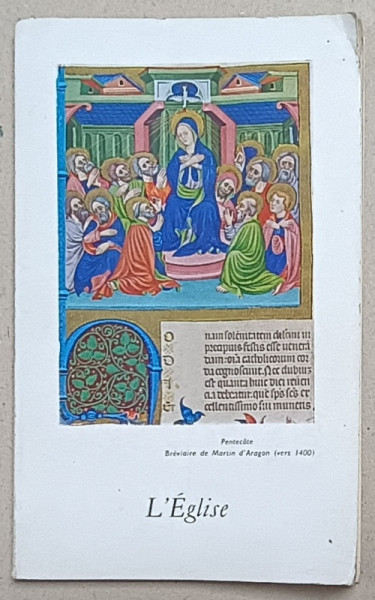 O nam solēnitatem in
D precipuis festis esse venera
dam catholicorum cor
I da cognoscūt. Nec dubiuz
est quanta huic diei reuerē
E cia debeatur quē sp̄s sc̄s ex
cellentissimo sui muneris
Pentecôte
Bréviaire de Martin d'Aragon (vers 1400)
L'Église